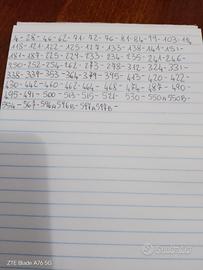 4-28-46-62-71-72-76-81-84-99-103-
118-121-122-125-127-133-138-141-151-
181-187-225-229-233-234-235-241-246-
250-252-254-262-273-278-312-324-331-
338-339-353-364-379-395-413-420-422
430-442-460-462-464-468-474-487-490
495-491-500-513-515-521-530-550A 550B
554-567-596A 596B-597A 597B-
ZTE Blade A76 5G
subito